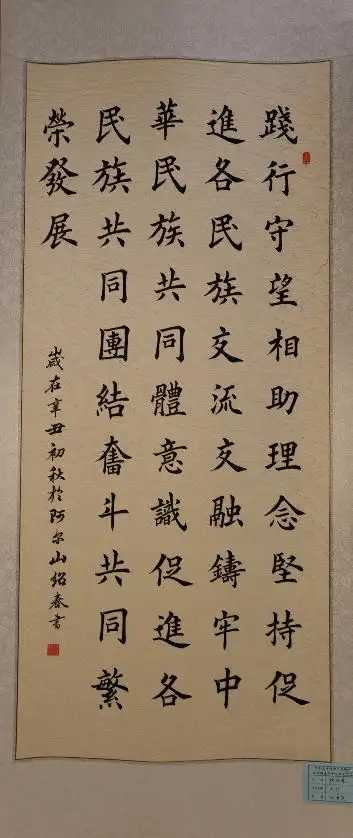 踐行守望相助理念堅持促
進各民族交流交融鑄牢中
華民族共同體意識促進各
民族共同團結奮斗共同繁
榮發展
歲在辛丑初秋於阿尔山紹春書